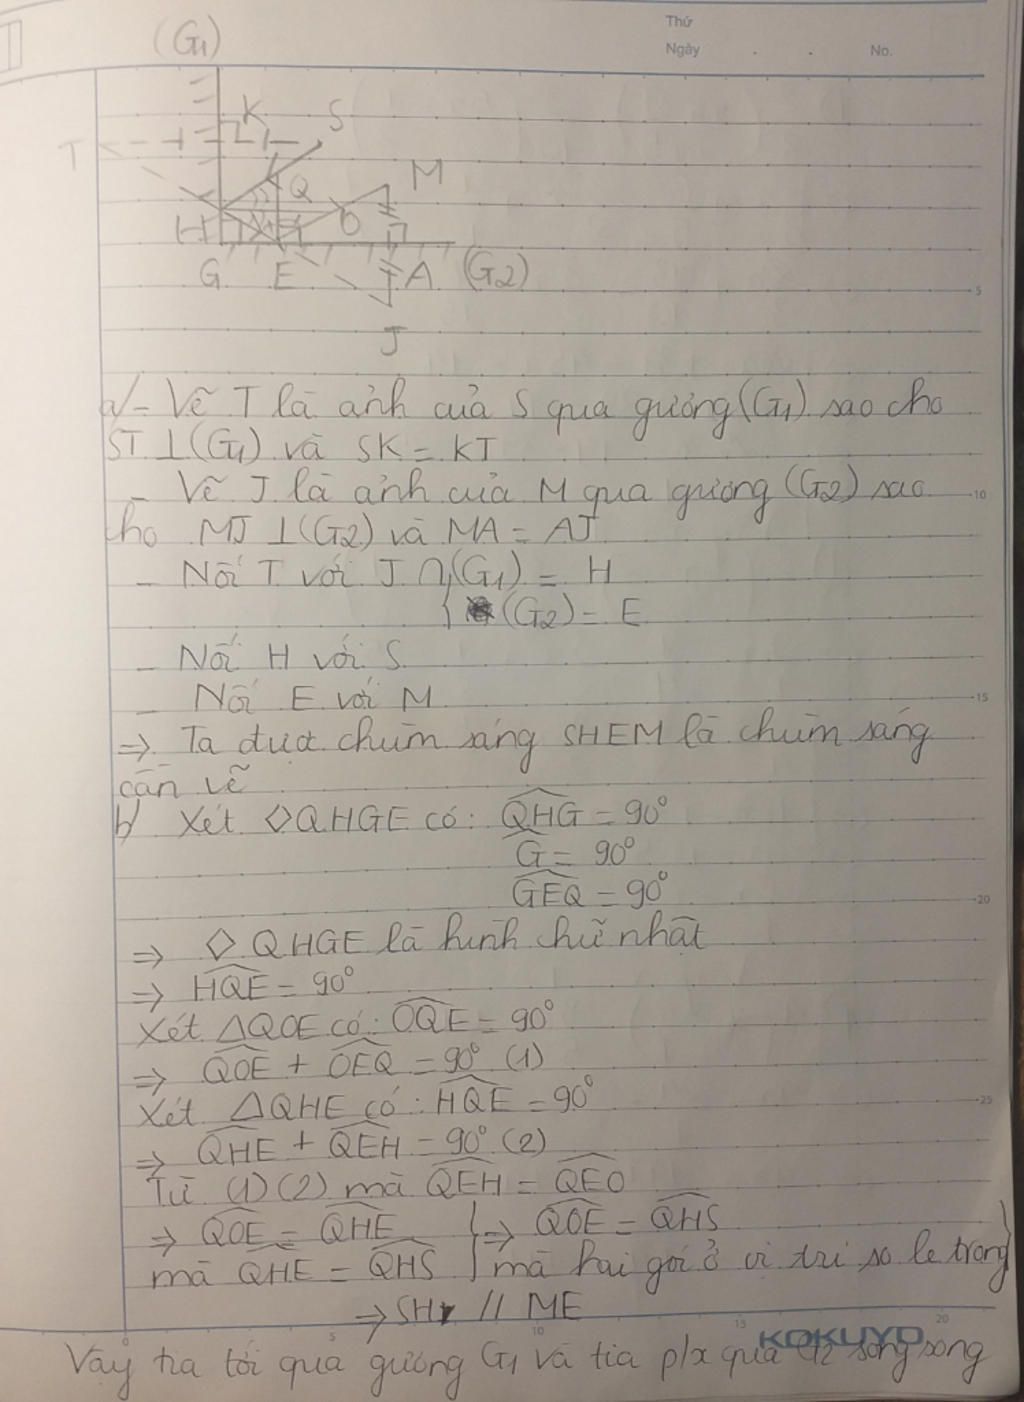 Thứ
Ngày . . No.
(G₁)
K S
T
Q M
H O
G E A (G2)
J
5
a/ - Vẽ T là ảnh của S qua gương (G₁) sao cho
ST ⊥ (G₁) và SK = KT
- Vẽ J là ảnh của M qua gương (G2) sao 10
cho MJ ⊥ (G2) và MA = AJ
- Nối T với J ∩ (G₁) = H
(G2) = E
- Nối H với S
- Nối E với M 15
⇒ Ta được chùm sáng SHEM là chùm sáng
cần vẽ
b/ Xét ◇QHGE có: \widehat{QHG} = 90°
\widehat{G} = 90°
\widehat{GEQ} = 90° 20
⇒ ◇QHGE là hình chữ nhật
⇒ \widehat{HQE} = 90°
Xét ΔQOE có: \widehat{OQE} = 90°
⇒ \widehat{QOE} + \widehat{OEQ} = 90° (1)
Xét ΔQHE có: \widehat{HQE} = 90° 25
⇒ \widehat{QHE} + \widehat{QEH} = 90° (2)
Từ (1) (2) mà \widehat{QEH} = \widehat{QEO}
⇒ \widehat{QOE} = \widehat{QHE} } ⇒ \widehat{QOE} = \widehat{QHS} }
mà \widehat{QHE} = \widehat{QHS} } mà hai góc ở vị trí so le trong }
⇒ SH // ME
0 5 10 15 20
KOKUYO
Vậy tia tới qua gương G₁ và tia p/x qua G2 song song